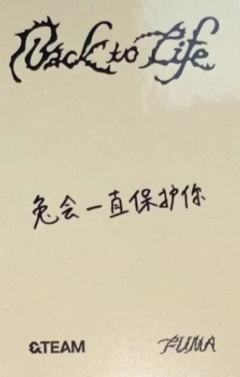 Back to Life
兔会一直保护你
&TEAM
FUMA